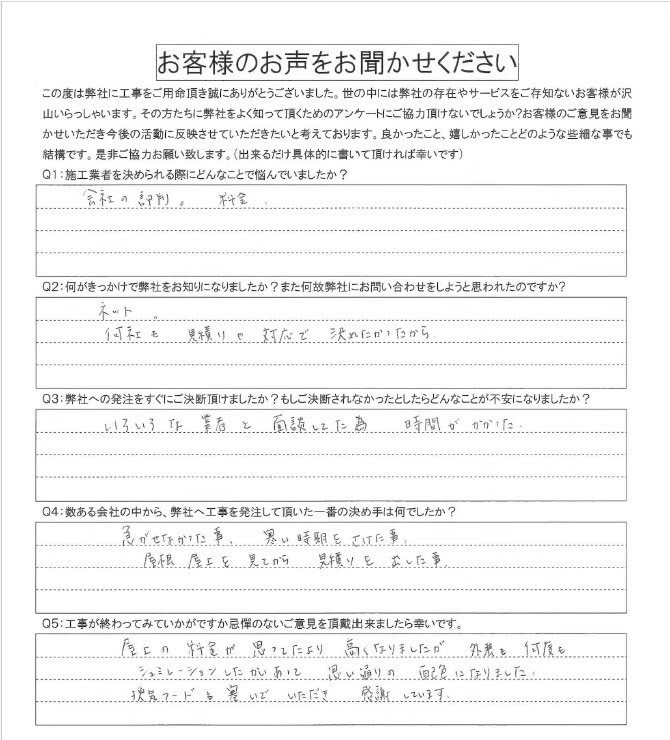 お客様のお声をお聞かせください
この度は弊社に工事をご用命頂き誠にありがとうございました。世の中には弊社の存在やサービスをご存知ないお客様が沢
山いらっしゃいます。その方たちに弊社をよく知って頂くためのアンケートにご協力頂けないでしょうか?お客様のご意見をお聞
かせいただき今後の活動に反映させていただきたいと考えております。良かったこと、嬉しかったことどのような些細な事でも
結構です。是非ご協力お願い致します。(出来るだけ具体的に書いて頂ければ幸いです)
Q1:施工業者を決められる際にどんなことで悩んでいましたか?
会社の評判。 料金.
Q2:何がきっかけで弊社をお知りになりましたか?また何故弊社にお問い合わせをしようと思われたのですか?
ネット 。
何社も 見積りや 対応で 決めたかったから.
Q3:弊社への発注をすぐにご決断頂けましたか?もしご決断されなかったとしたらどんなことが不安になりましたか?
いろいろな 業者と 面談してた為 時間が かかった.
Q4:数ある会社の中から、弊社へ工事を発注して頂いた一番の決め手は何でしたか?
急がせなかった事、 寒い時期を さけた事.
屋根 屋上を 見てから 見積りを 出した事
Q5:工事が終わってみていかがですか忌憚のないご意見を頂戴出来ましたら幸いです。
屋上の 料金が 思ってたより 高くなりましたが 外装も 何度も
シュミレーションしたかいあって 思い通りの 配色になりました.
換気フードも 塞いで いただき 感謝しています.